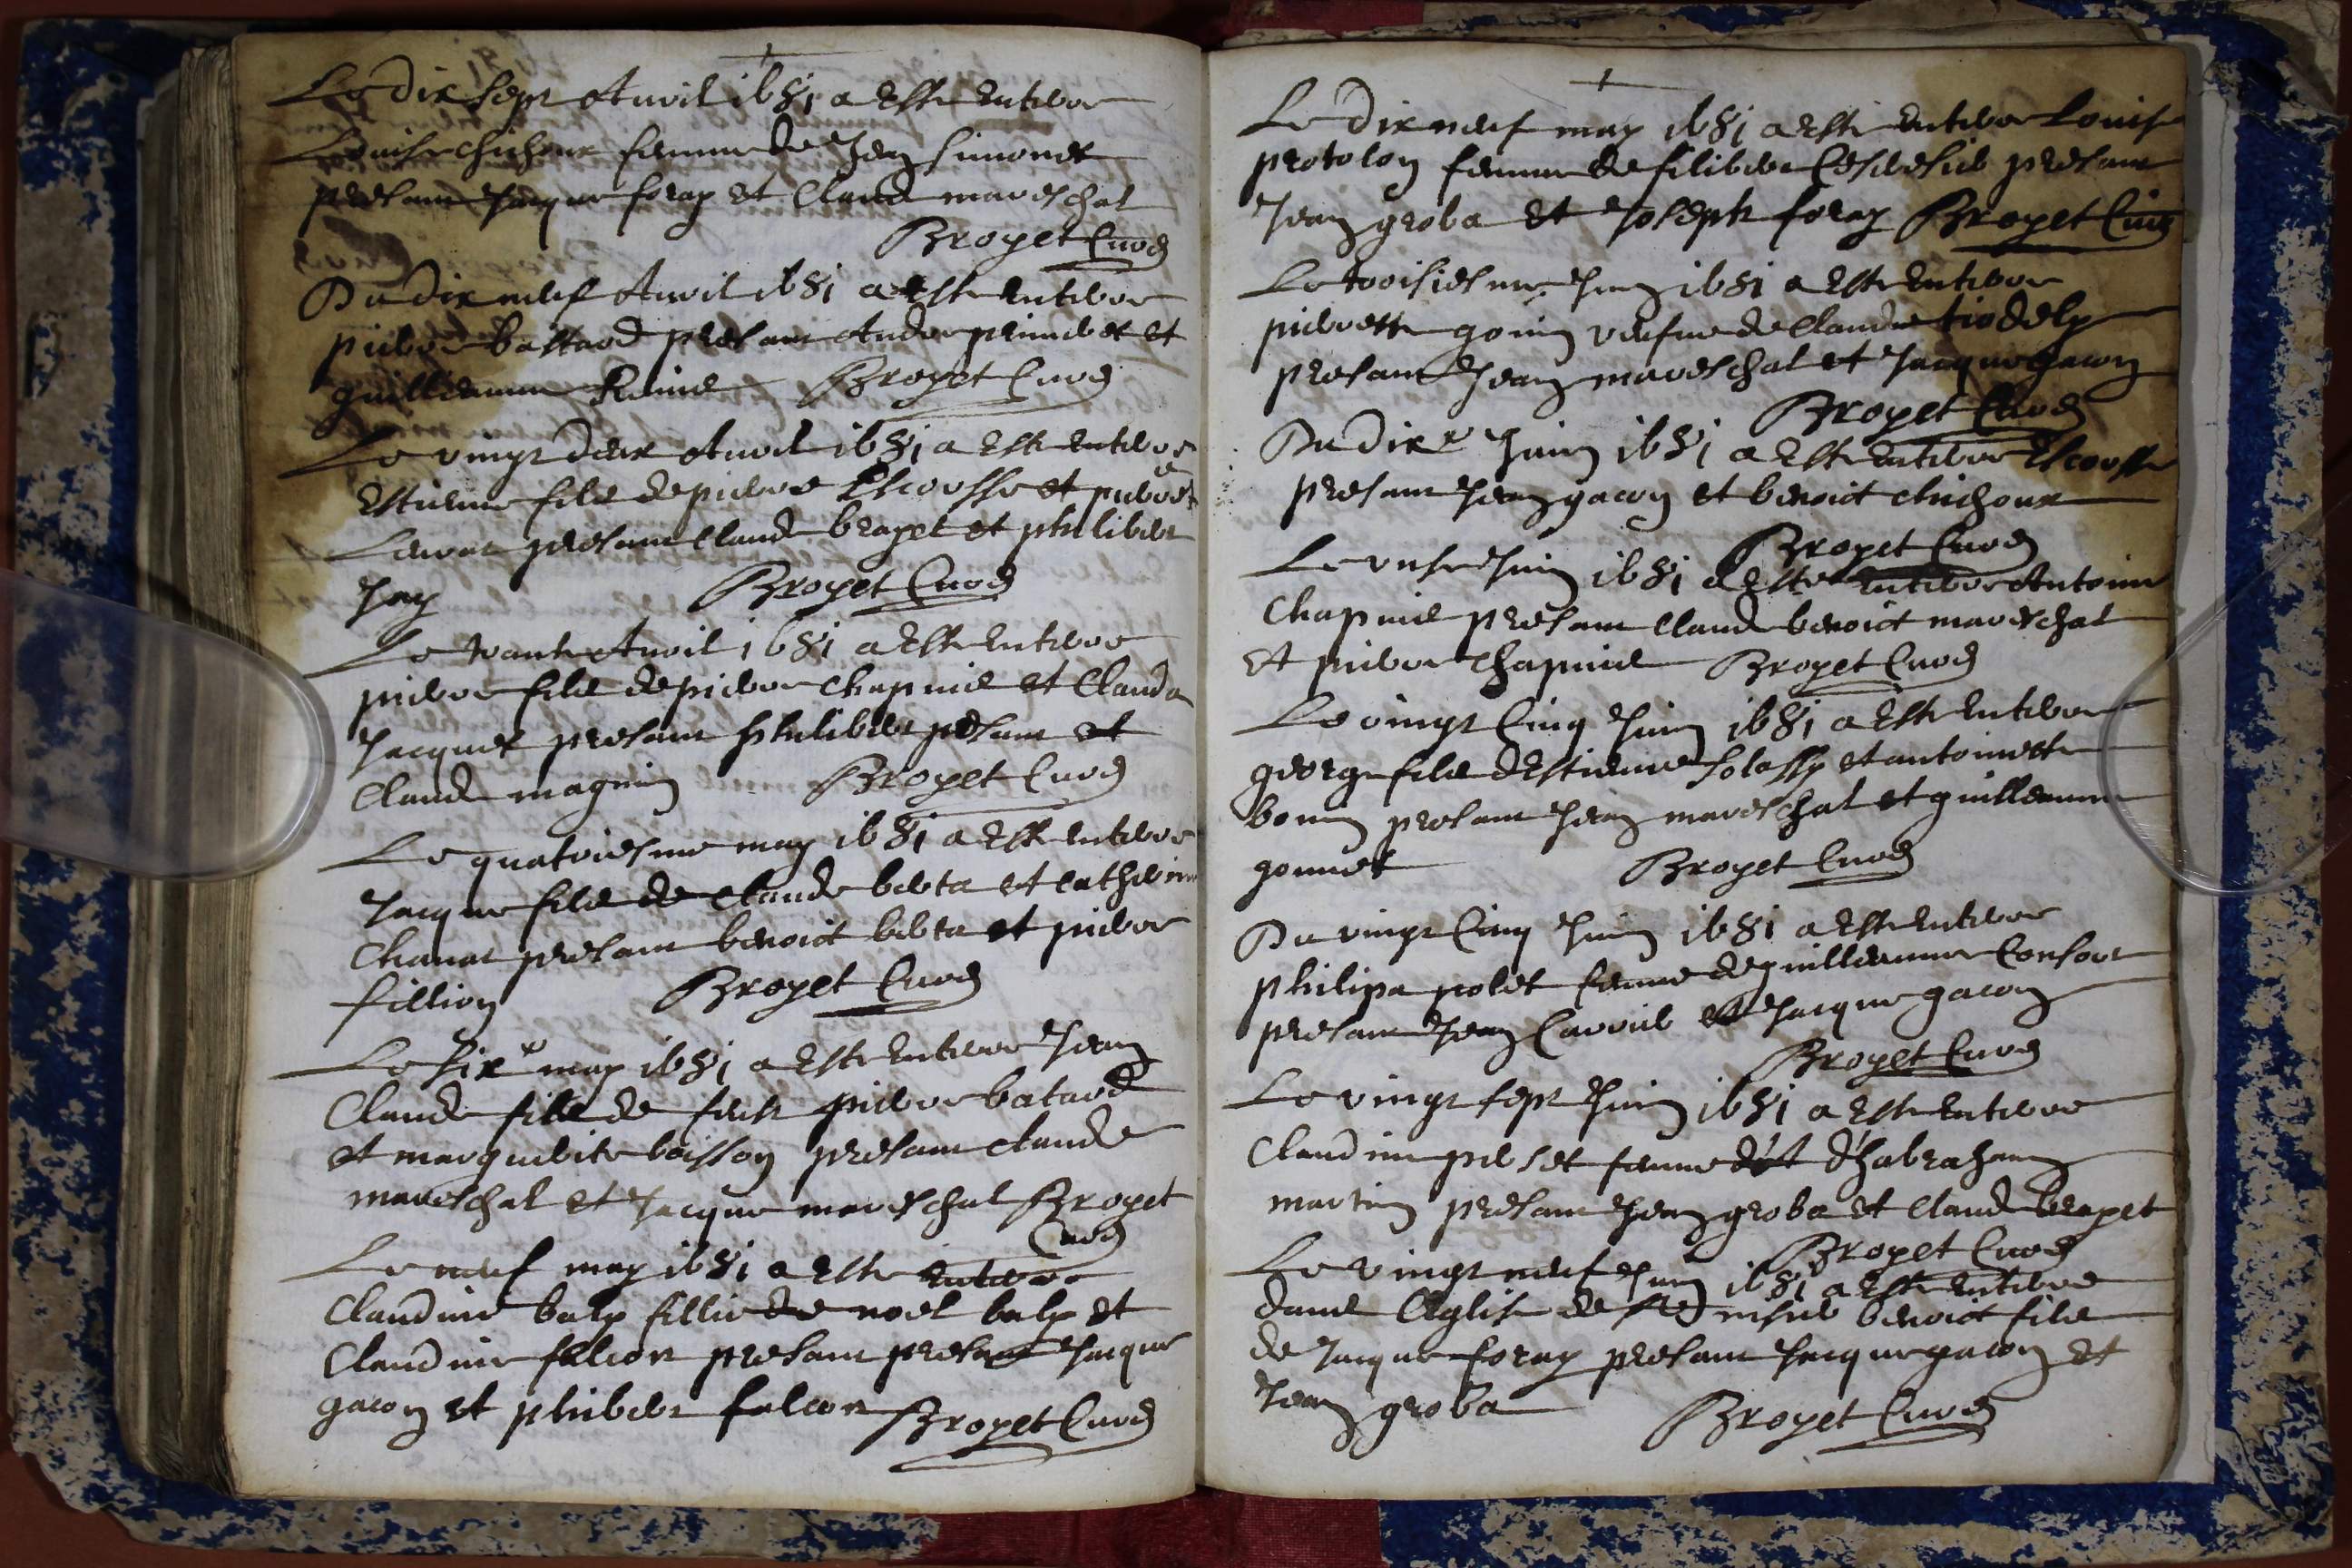 Le dix sept Avvril 1681 a esté enterre
Louise chichoux femme de Jean simonet
presant Jacque foray et Claude mareschal
Broyet Curé
Du dix neuf Avvril 1681 a esté enterre
pierre bastard presant Andre primeret et
guilliaume
Broyet Curé
Le vingt deux Avvril 1681 a esté enterre
Estienne fils de pierre Escoosse et pierret
presant Claude brayet et philibert
Jay
Broyet Curé
Le trante Avvril 1681 a esté enterre
pierre fils de pierre Chapuis et Clauda
Jacquet presant philibert et
Claude magnin
Broyet Curé
Le quatriesme may 1681 a esté enterre
Jacque fils de Claude berta et catherine
Chanat presant benoict berta et pierre
fillion
Broyet Curé
Le six may 1681 a esté enterre Jean
Claude fille de feust pierre batard
et marguerite boisson presant claude
mareschal et Jacque mareschal Broyet
Curé
Le neuf may 1681 a esté enterre
Claudine baly fillie de noel baly et
Claudine falcon presant presant Jacque
gacon et phibert falcon Broyet Curé
Le dix neuf may 1681 a esté enterre Louise
protolon femme de filibert presant
Jean groba et Joseph foray Broyet Curé
Le troisiesme Juin 1681 a esté enterre
pierrette gonin veufue de Claude
presant Jean mareschal et Jacque gacon
Broyet Curé
Du dix Juin 1681 a esté enterre Escoosse
presant Jean gacon et benoict chichoux
Broyet Curé
Le unse Juin 1681 a esté enterre Antoine
Chapuis presant Claude benoict mareschal
et pierre Chapuis Broyet Curé
Le vingt Cinq Juin 1681 a esté enterre
george fils d'Estienne solassy et antoinette
bonin presant Jean mareschal et guilleaume
gonnet
Broyet Curé
Du vingt Cinq Juin 1681 a esté enterre
philipa polet femme de guilleaume Consort
presant Jean Carrier et Jacque gacon
Broyet Curé
Le vingt sept Juin 1681 a esté enterre
Claudine perset femme d'habraham
martin presant Jean groba et Claude brayet
Broyet Curé
Le vingt neuf Juin 1681 a esté enterre
dans l'Eglise de benoict fils
de Jacque foray presant Jacque gacon et
Jean groba
Broyet Curé